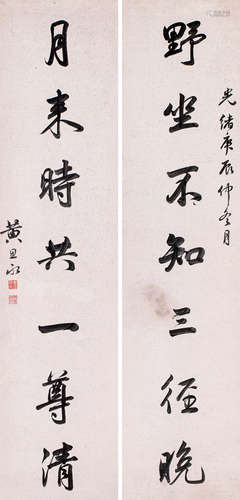 野坐不知三径晚
光緒庚辰仲冬月
月来時共一尊清
黄思永